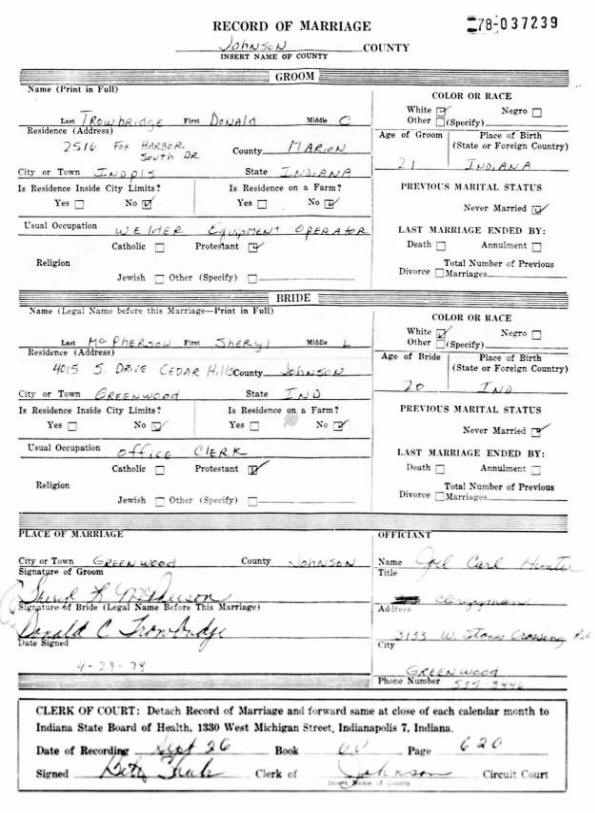 RECORD OF MARRIAGE
78-037239
Johnson COUNTY
INSERT NAME OF COUNTY
GROOM
Name (Print in Full)
Last Trowbridge First Donald Middle C
Residence (Address)
2516 Fox Harbor South Dr. County Marion
City or Town Indpls State Indiana
Is Residence Inside City Limits? Is Residence on a Farm?
Yes No Yes No
Usual Occupation Welder Equipment Operator
Catholic Protestant
Religion
Jewish Other (Specify)
COLOR OR RACE
White Negro
Other (Specify)
Age of Groom Place of Birth
(State or Foreign Country)
21 Indiana
PREVIOUS MARITAL STATUS
Never Married
LAST MARRIAGE ENDED BY:
Death Annulment
Total Number of Previous
Divorce Marriages
BRIDE
Name (Legal Name before this Marriage—Print in Full)
Last McPherson First Sheryl Middle L
Residence (Address)
4015 S. Drive Cedar Hills County Johnson
City or Town Greenwood State Ind
Is Residence Inside City Limits? Is Residence on a Farm?
Yes No Yes No
Usual Occupation Office Clerk
Catholic Protestant
Religion
Jewish Other (Specify)
COLOR OR RACE
White Negro
Other (Specify)
Age of Bride Place of Birth
(State or Foreign Country)
20 Ind
PREVIOUS MARITAL STATUS
Never Married
LAST MARRIAGE ENDED BY:
Death Annulment
Total Number of Previous
Divorce Marriages
PLACE OF MARRIAGE
City or Town Greenwood County Johnson
Signature of Groom
McPherson
Signature of Bride (Legal Name Before This Marriage)
Donald C Trowbridge
Date Signed
9-23-78
OFFICIANT
Name Joel Carl Hunter
Title
Clergyman
Address
3133 W. Stones Crossing Rd
City
Greenwood
Phone Number
CLERK OF COURT: Detach Record of Marriage and forward same at close of each calendar month to
Indiana State Board of Health, 1330 West Michigan Street, Indianapolis 7, Indiana.
Date of Recording Sept 26 Book Page 620
Signed Clerk of Johnson Circuit Court
Insert Name of County